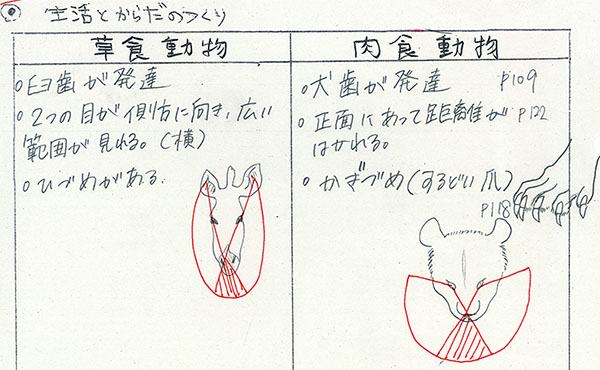 生活とからだのつくり
草食動物
○臼歯が発達
○2つの目が側方に向き、広い
範囲が見れる。(横)
○ひづめがある.
肉食動物
○犬歯が発達 P109
○正面にあって距離が P122
はかれる。
○かぎづめ(するどい爪)
P118